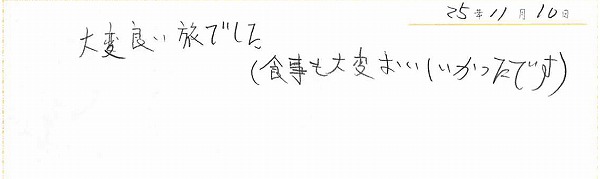 25年11月10日
大変良い旅でした
(食事も大変おいしいかったてです)